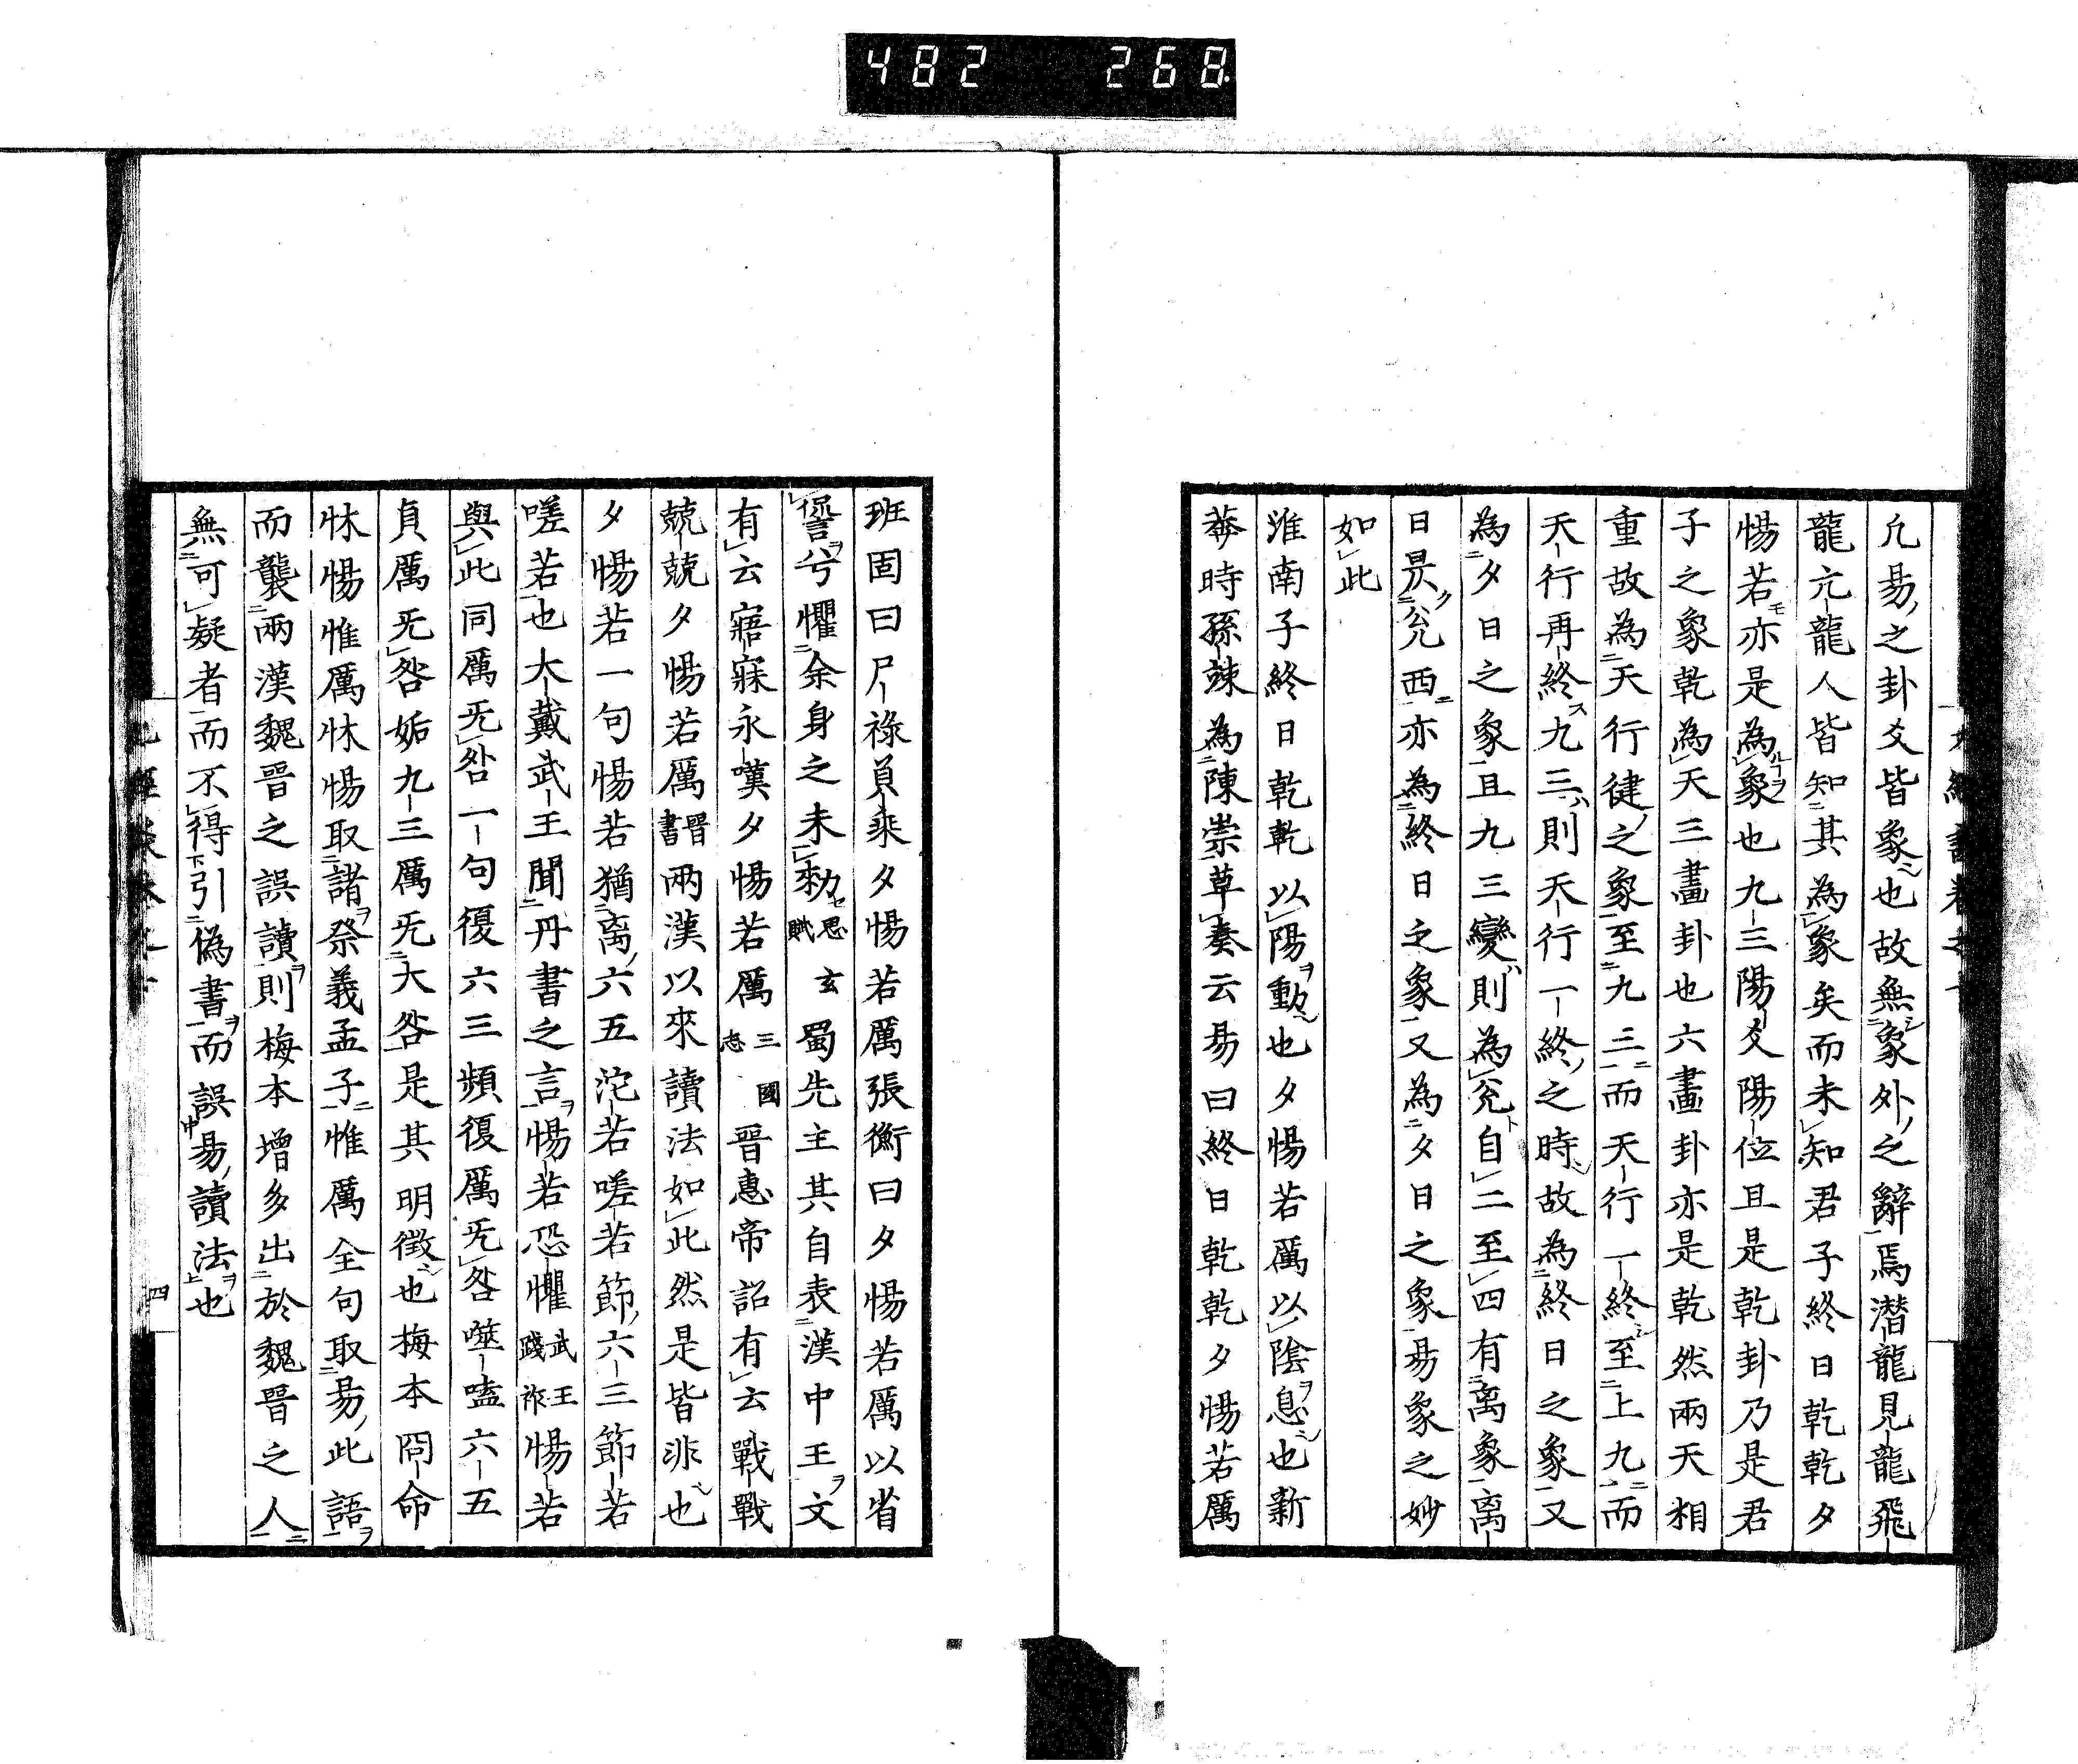 482 268
凢易之卦爻皆象也故無象外之辭焉潛龍見龍飛
龍亢龍人皆知其為象矣而未知君子終日乾乾夕
惕若亦是為象也九三陽爻陽位且是乾卦乃是君
子之象乾為天三畫卦也六畫卦亦是乾然兩天相
重故為天行健之象至九三而天行一終至上九而
天行再終九三則天行一終之時故為終日之象又
為夕日之象且九三變則為兊自二至四有离象离
日昃兊西亦為終日之象又為夕日之象易象之妙
如此
淮南子終日乾乾以陽動也夕惕若厲以陰息也新
莽時孫竦為陳崇草奏云易曰終日乾乾夕惕若厲
班固曰尸祿負乘夕惕若厲張衡曰夕惕若厲以省
諐兮懼余身之未勑思玄賦蜀先主其自表漢中王文
有云寤寐永嘆夕惕若厲三國志晉惠帝詔有云戰戰
兢兢夕惕若厲晉書兩漢以來讀法如此然是皆非也
夕惕若一句惕若猶离六五沱若嗟若節六三節若
嗟若也大戴武王聞丹書之言惕若恐懼武王踐祚惕若
與此同厲旡咎一句復六三頻復厲旡咎噬嗑六五
貞厲旡咎姤九三厲旡大咎是其明徵也梅本冏命
怵惕惟厲怵惕取諸祭義孟子惟厲全句取易此語
而襲兩漢魏晉之誤讀則梅本增多出於魏晉之人
無可疑者而不得引偽書而誤易讀法也
四